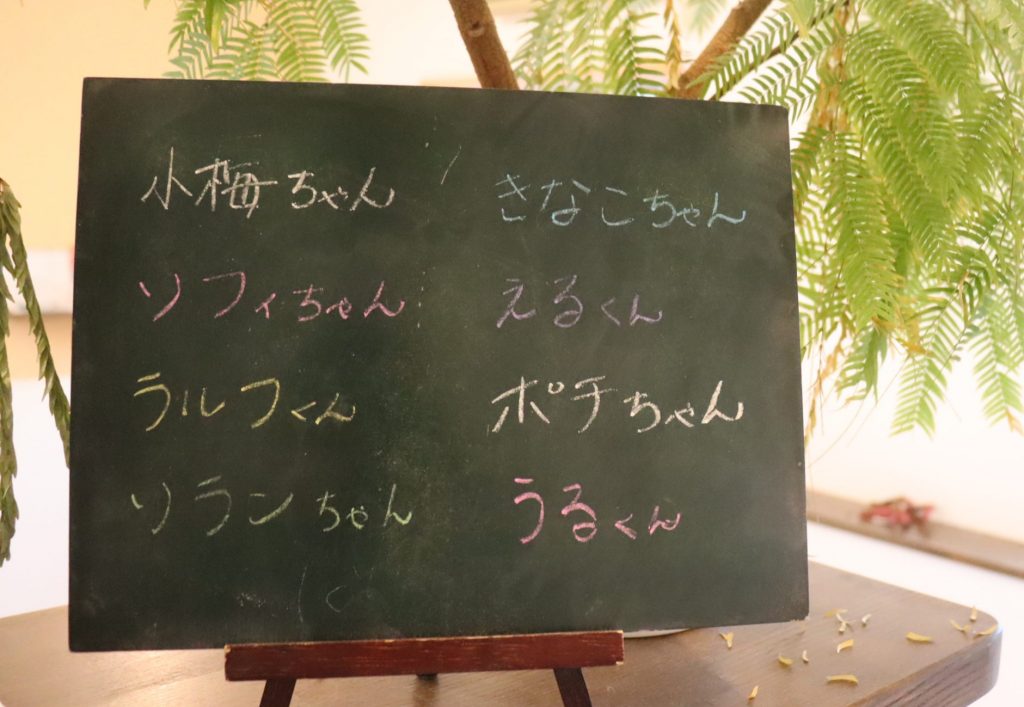 小梅ちゃん
ソフィちゃん
ラルフくん
ソランちゃん
きなこちゃん
えるくん
ポチちゃん
うるくん